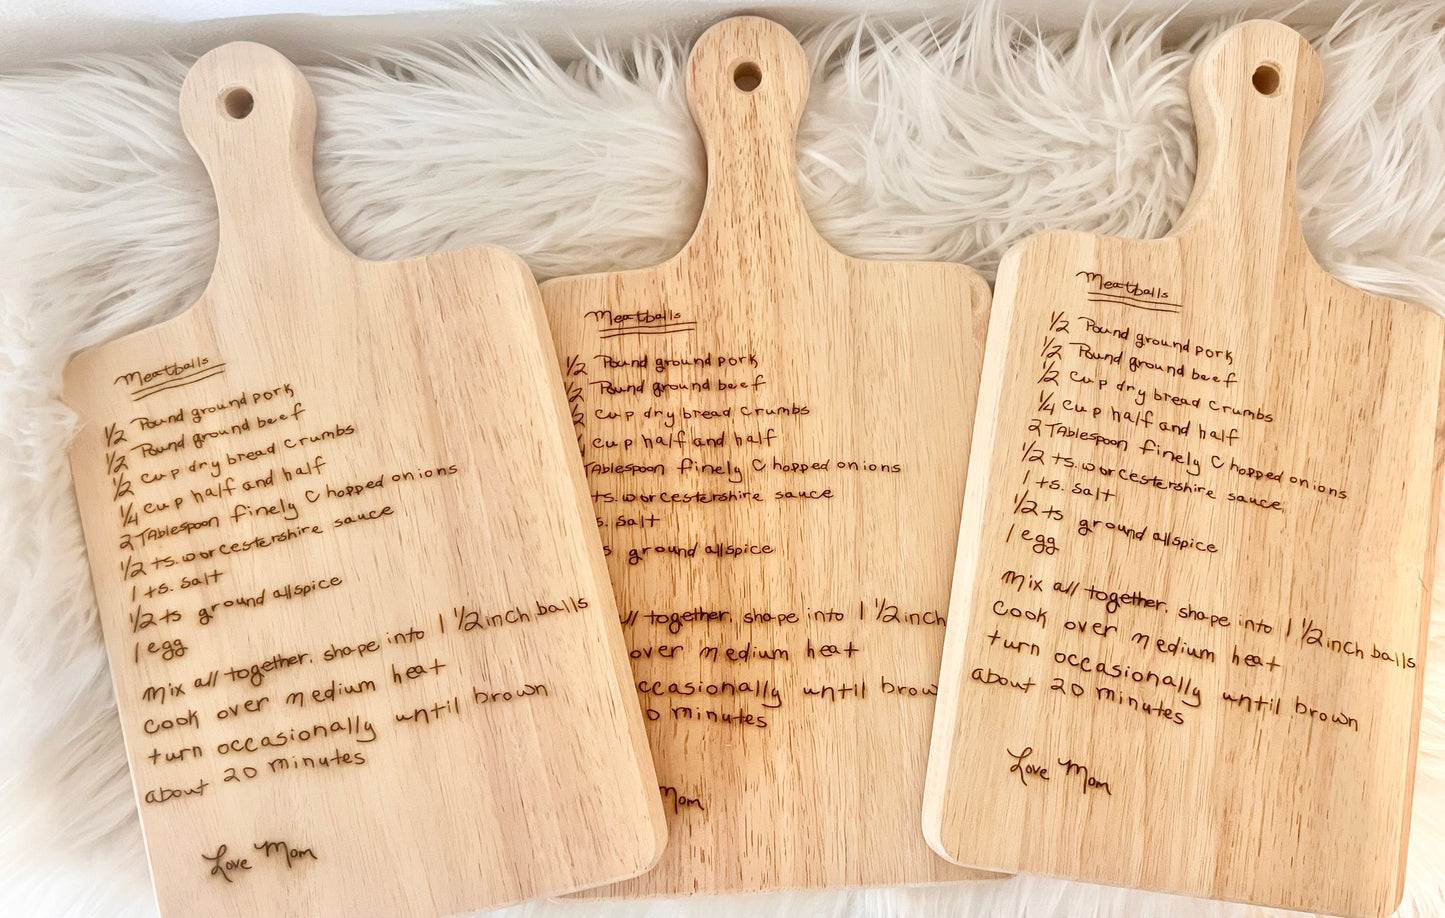 Meatballs
1/2 Pound ground pork
1/2 Pound ground beef
1/2 cup dry bread crumbs
1/4 cup half and half
2 TAblespoon finely Chopped onions
1/2 ts. worcestershire sauce
1 ts. salt
1/2 ts ground allspice
1 egg
Mix all together. shape into 1 1/2 inch balls
Cook over medium heat
turn occasionally until brown
about 20 minutes
Love Mom
Meatballs
1/2 Pound ground pork
1/2 Pound ground beef
1/2 cup dry bread crumbs
cup half and half
TAblespoon finely Chopped onions
ts. worcestershire sauce
s. salt
s ground allspice
ll together. shape into 1 1/2 inch
over medium heat
ccasionally until brow
0 minutes
Mom
Meatballs
1/2 Pound ground pork
1/2 Pound ground beef
1/2 cup dry bread crumbs
1/4 cup half and half
2 TAblespoon finely Chopped onions
1/2 ts. worcestershire sauce
1 ts. salt
1/2 ts ground allspice
1 egg
Mix all together. shape into 1 1/2 inch balls
Cook over medium heat
turn occasionally until brown
about 20 minutes
Love Mom